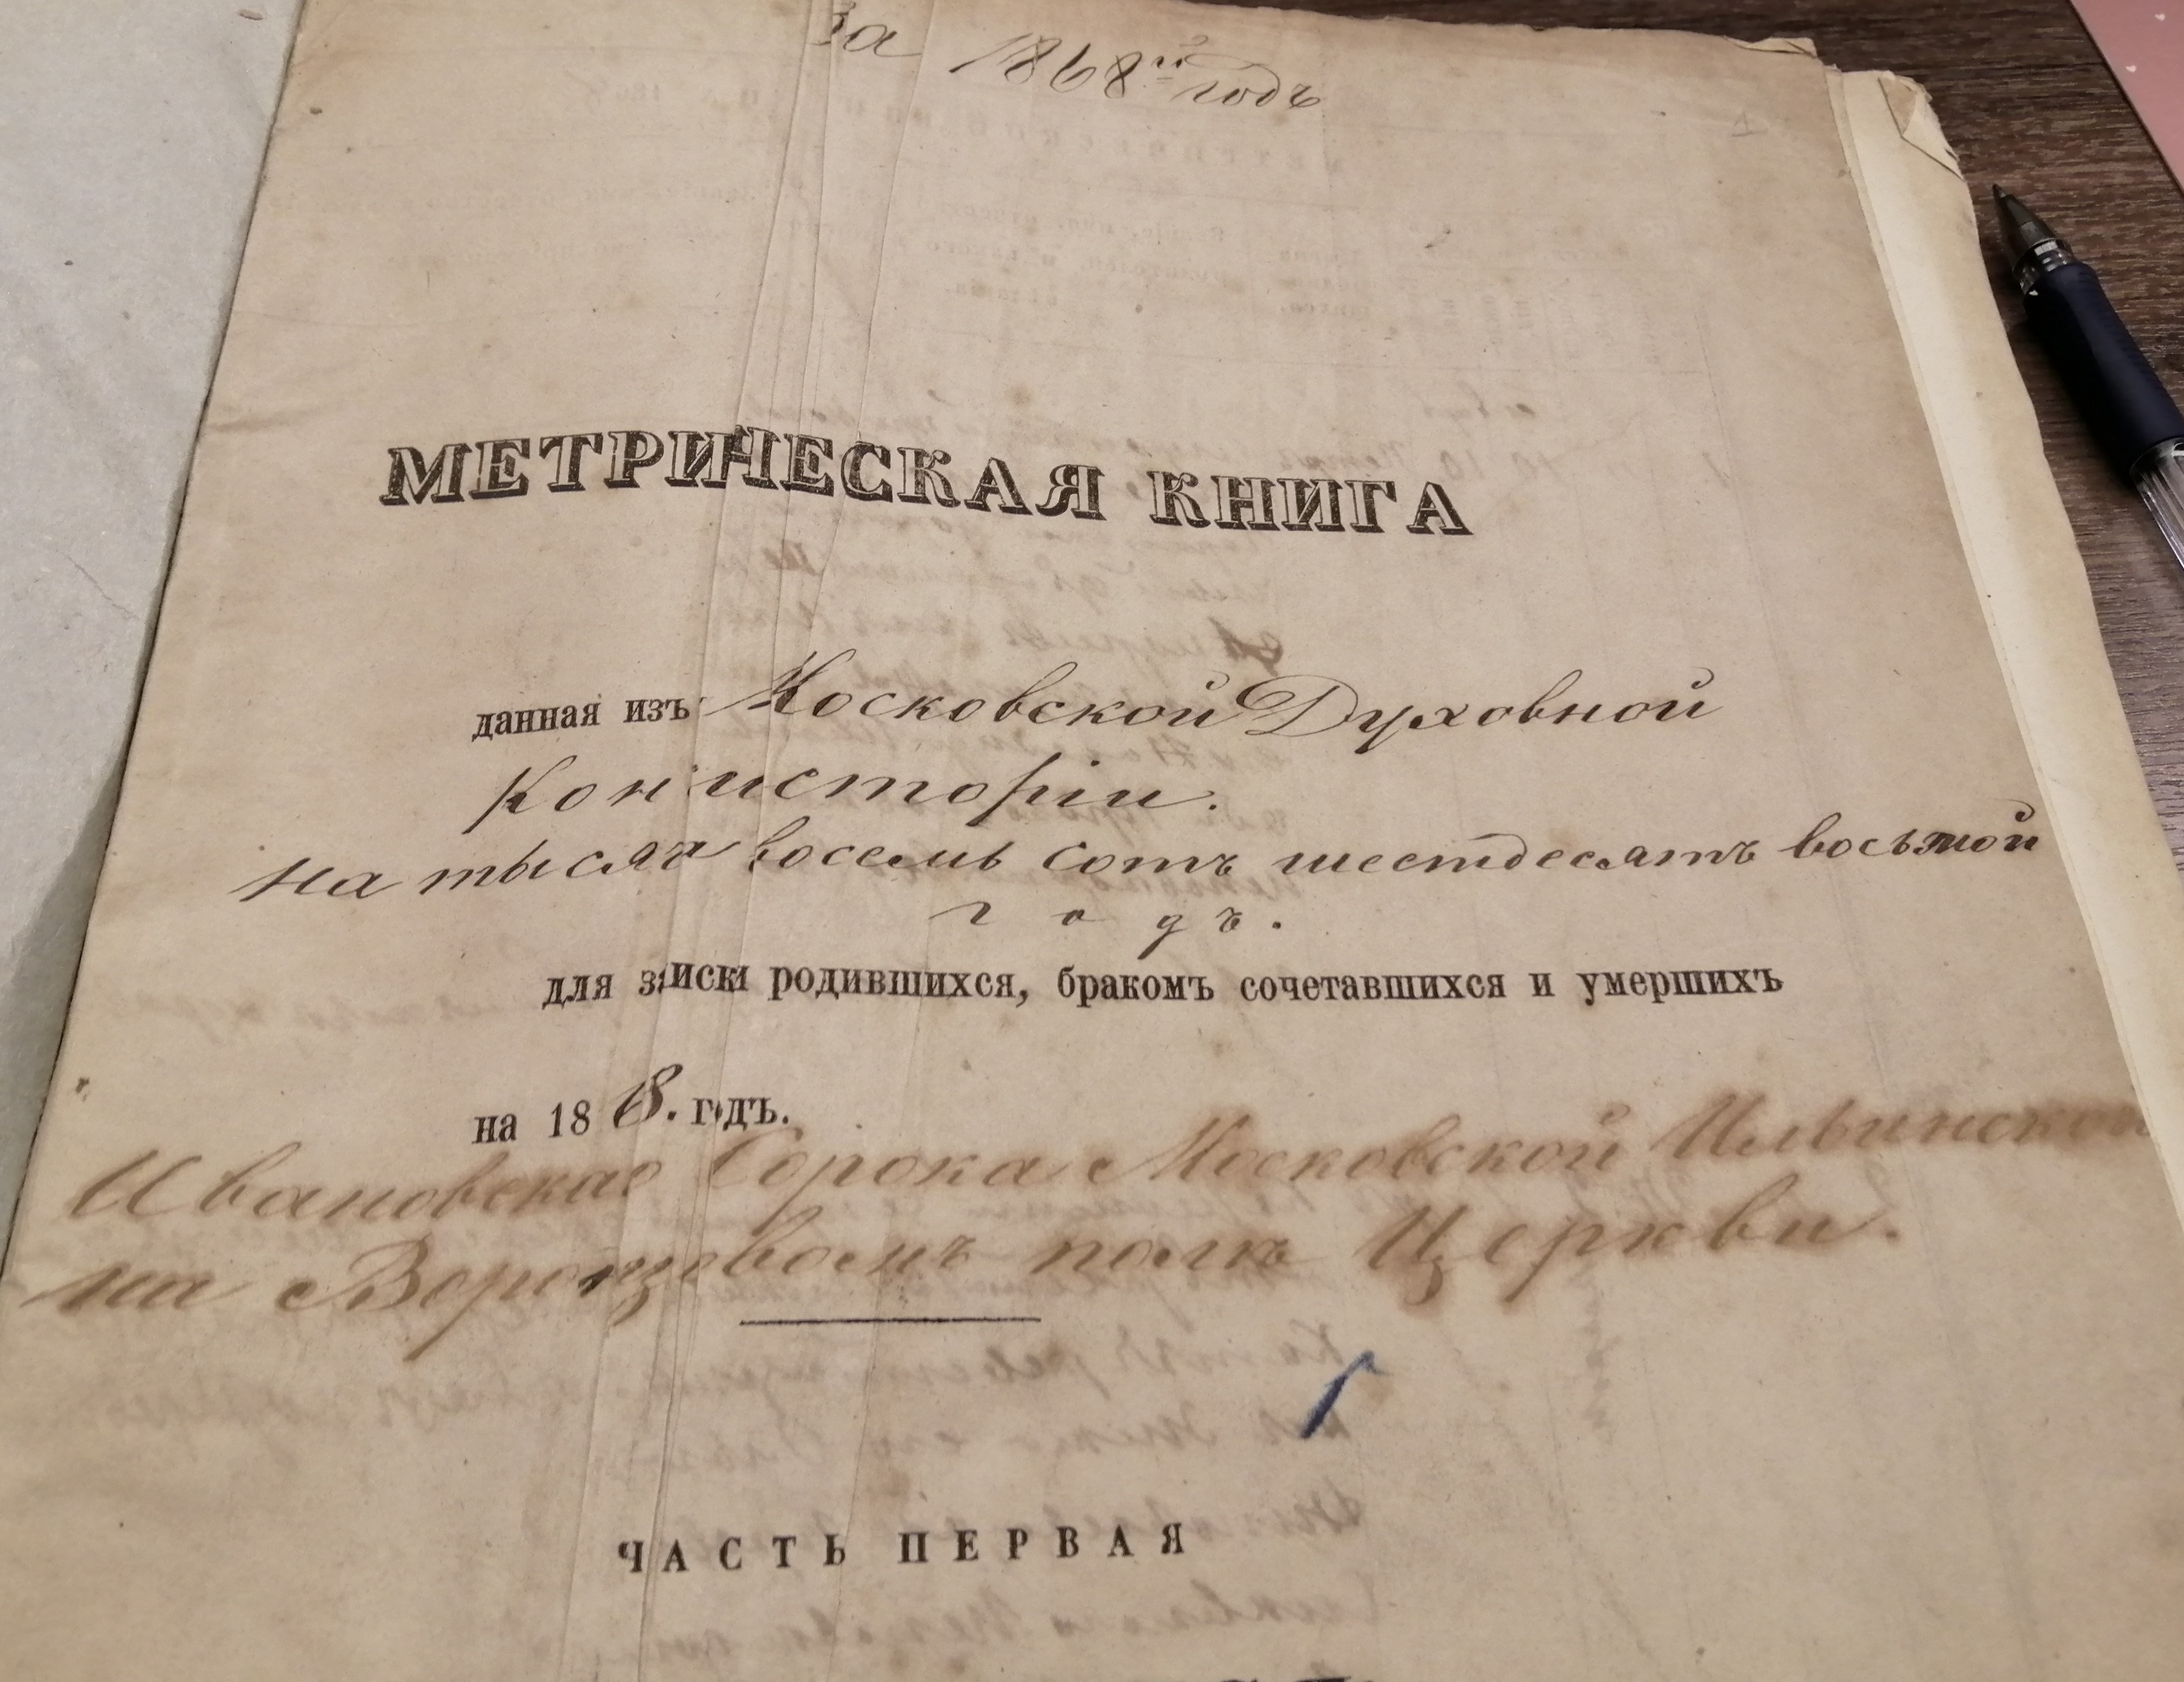 За 1868й годъ
1
МЕТРИЧЕСКАЯ КНИГА
данная изъ Московской Духовной
Консисторіи.
На тысяча восемь сотъ шестдесятъ восьмой
годъ.
для записки родившихся, бракомъ сочетавшихся и умершихъ
на 1868. годъ.
Ивановскаго Сорока Московской Ильинской
на Воронцовомъ полѣ Церкви.
ЧАСТЬ ПЕРВАЯ